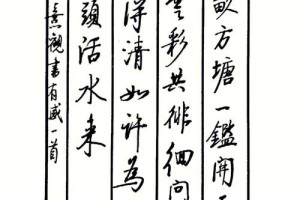 畝方塘一鑑開
雲彩共徘徊問
得清如許為
頭活水来
熹觀書有感一首